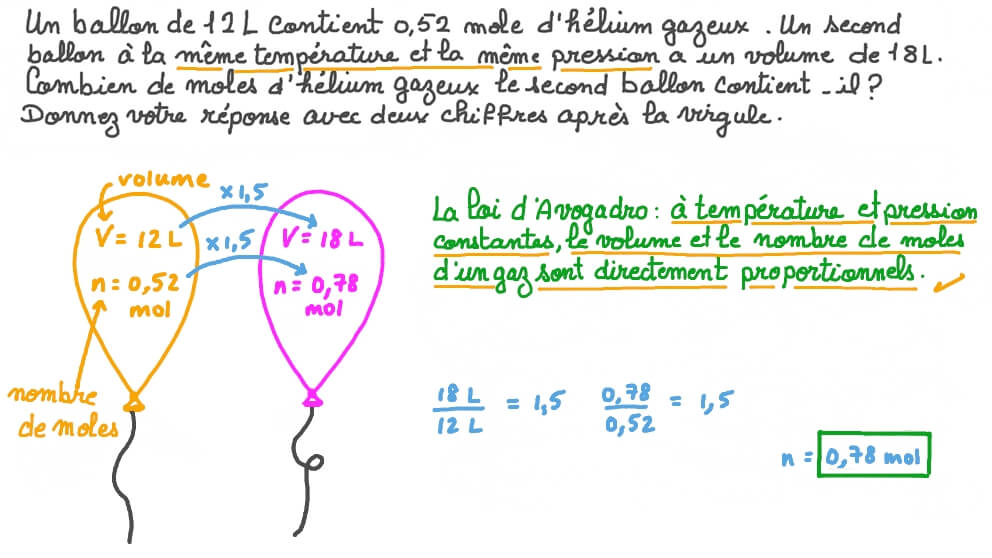 Un ballon de 12 L contient 0,52 mole d'hélium gazeux. Un second
ballon à la même température et la même pression a un volume de 18 L.
Combien de moles d'hélium gazeux le second ballon contient-il ?
Donnez votre réponse avec deux chiffres après la virgule.
volume
×1,5
V = 12 L
×1,5
V = 18 L
n = 0,52
mol
n = 0,78
mol
nombre
de moles
La loi d'Avogadro : à température et pression
constantes, le volume et le nombre de moles
d'un gaz sont directement proportionnels.
18 L
12 L
= 1,5
0,78
0,52
= 1,5
n = 0,78 mol